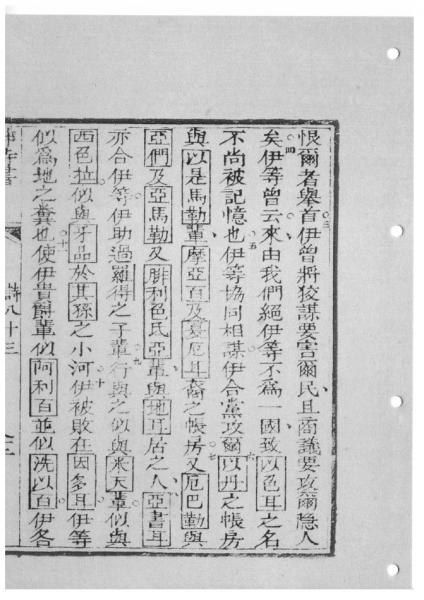 恨爾者舉首三伊曾將狡謀要害爾民、且商議要攻爾隱人
矣四伊等曾云來、由我們絕伊等不為一國、致以色耳之名
不尚被記憶也五伊等協同相謀伊合黨攻爾六以丹之帳房
與以是馬勒輩、摩亞百及夏厄耳裔之帳房七又厄巴勒與
亞們及亞馬勒及腓利色氏亞輩與地耳居之人、八亞書耳
亦合伊等伊助過羅得之子輩九行與之似與米天輩似與
西色拉似與牙品於其孫之小河十伊被敗在因多耳伊等
似為地之糞也十一使伊貴爵輩似阿利百並似洗以百伊各
詩八十三